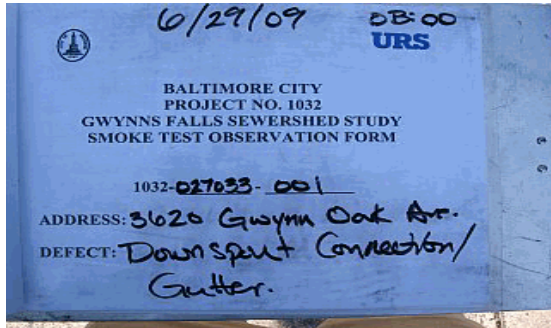 6/29/09 08:00
URS
BALTIMORE CITY
PROJECT NO. 1032
GWYNNS FALLS SEWERSHED STUDY
SMOKE TEST OBSERVATION FORM
1032-027033-001
ADDRESS: 3620 Gwynn Oak Av.
DEFECT: Downspout Connection/
Gutter.